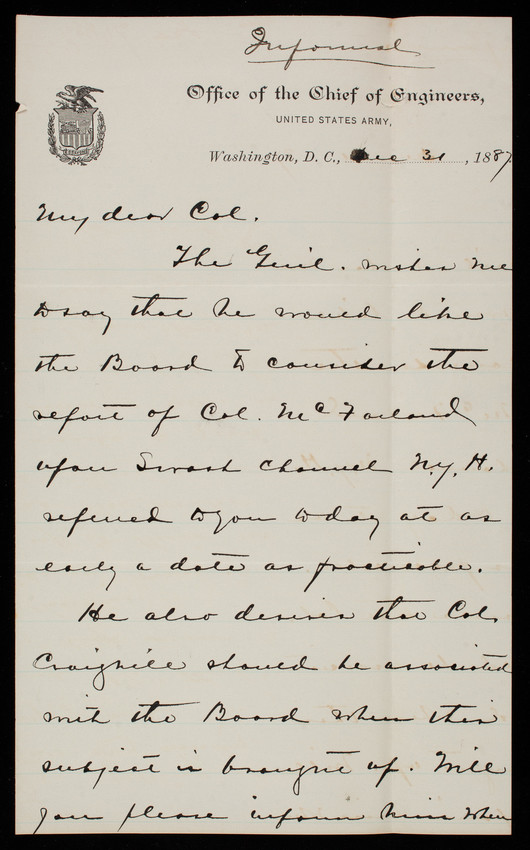 Informal
Office of the Chief of Engineers,
UNITED STATES ARMY,
Washington, D. C., Dec 31, 1887.
My dear Col.
The Genl. wishes me
to say that he would like
the Board to consider the
report of Col. McFarland
upon Swash Channel N.Y.H.
referred to you today at as
early a date as practicable.
He also desires that Col.
Craighill should be associated
with the Board when this
subject is brought up. Will
you please inform him when